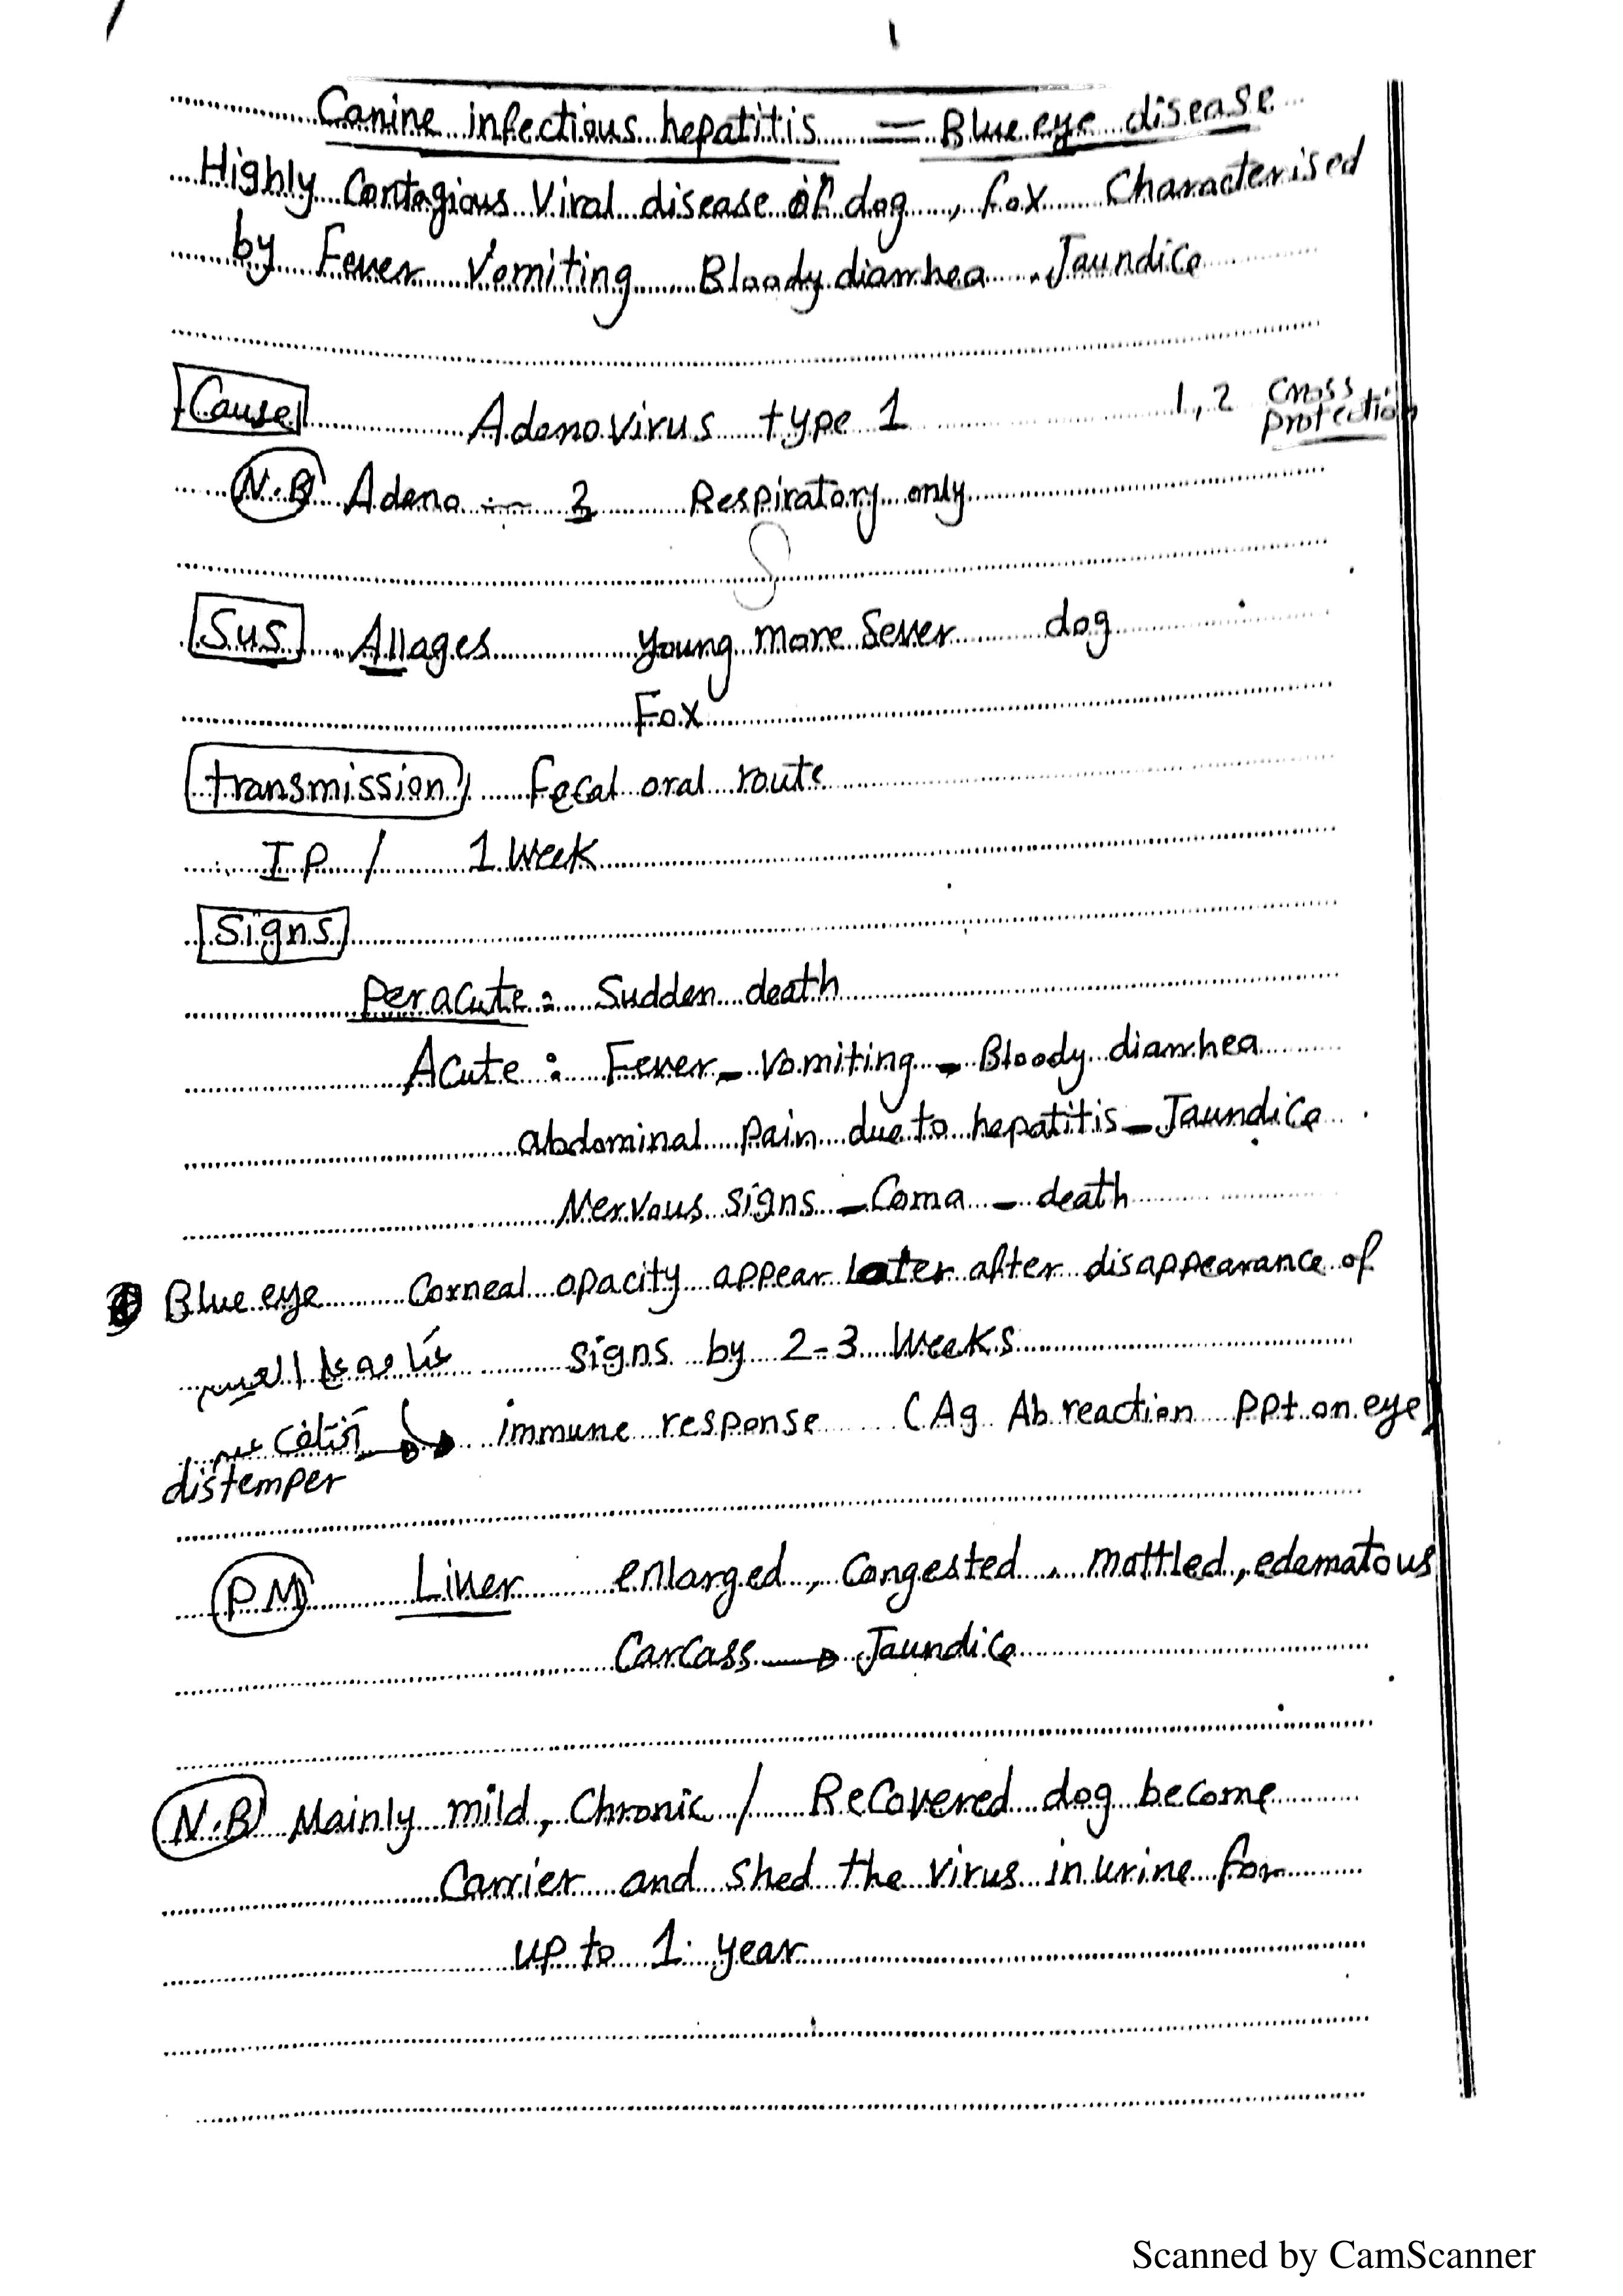 1
Canine infectious hepatitis = Blue eye disease
Highly Contagious Viral disease of dog, fox Characterised
by Fever Vomiting Bloody diarrhea, Jaundice
Cause Adenovirus type 1 1,2 cross protection
N.B Adeno Respiratory only
Sus All ages young more Sever dog
Fox
transmission / Fecal oral route
I P / 1 Week
Signs
Peracute: Sudden death
Acute: Fever - Vomiting - Bloody diarrhea
abdominal Pain due to hepatitis - Jaundice
Nervous signs - Coma - death
Blue eye Corneal opacity appear later after disappearance of
signs by 2-3 Weeks
immune response (Ag Ab reaction PPt on eye)
distemper
PM Liver enlarged, Congested, mottled, edematous
Carcass → Jaundice
N.B Mainly mild, Chronic / Recovered dog become
Carrier and shed the virus in urine for
up to 1 year
Scanned by CamScanner